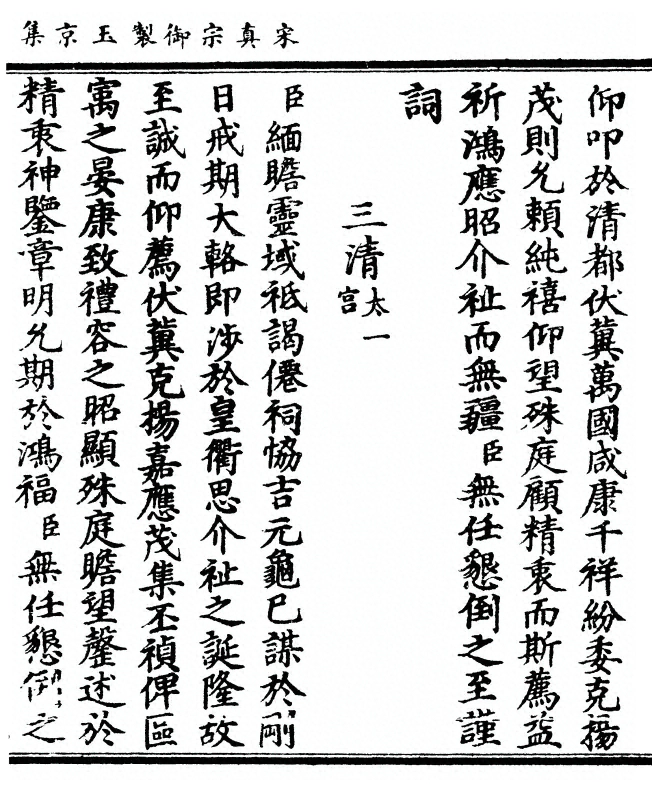 宋真宗御製玉京集
仰叩於清都伏冀萬國咸康千祥紛委克揚
茂則允頼純禧仰望殊庭顧精衷而斯薦益
祈鴻應昭介祉而無疆臣無任懇倒之至謹
詞
三清太一宮
臣緬瞻靈域祗謁僊祠恊吉元龜已謀於剛
日戒期大輅即涉於皇衢思介祉之誕隆故
至誠而仰薦伏冀克揚嘉應茂集丕禎俾區
寓之晏康致禮容之昭顯殊庭瞻望罄述於
精衷神鑒章明允期於鴻福臣無任懇倒之